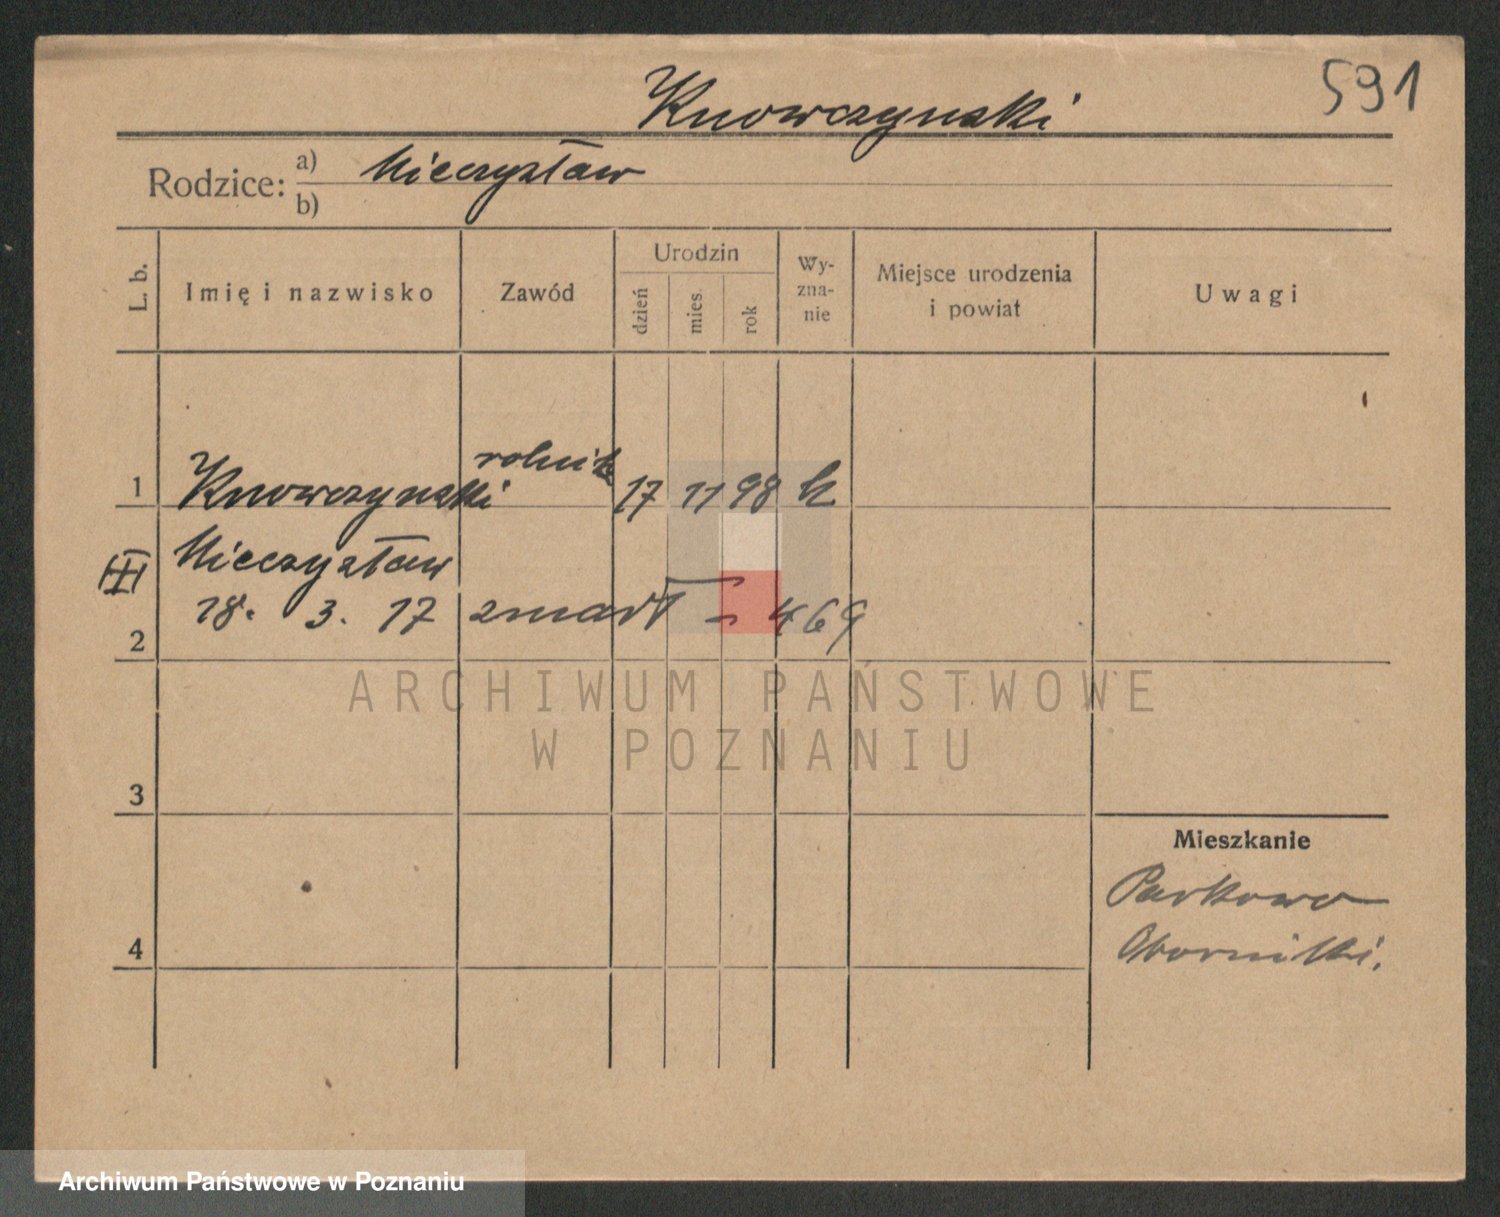 591
Knowczynski
Rodzice: a) Mieczysław
b)
L. b.
Imię i nazwisko
Zawód
Urodzin
dzień
mies.
rok
Wy-
zna-
nie
Miejsce urodzenia
i powiat
Uwagi
1
Knowczynski
rolnik
17 11 98 k
Mieczysław
18. 3. 17 zmarł - 469
2
ARCHIWUM PAŃSTWOWE
W POZNANIU
3
Mieszkanie
Parkowo
Oborniki.
4
Archiwum Państwowe w Poznaniu